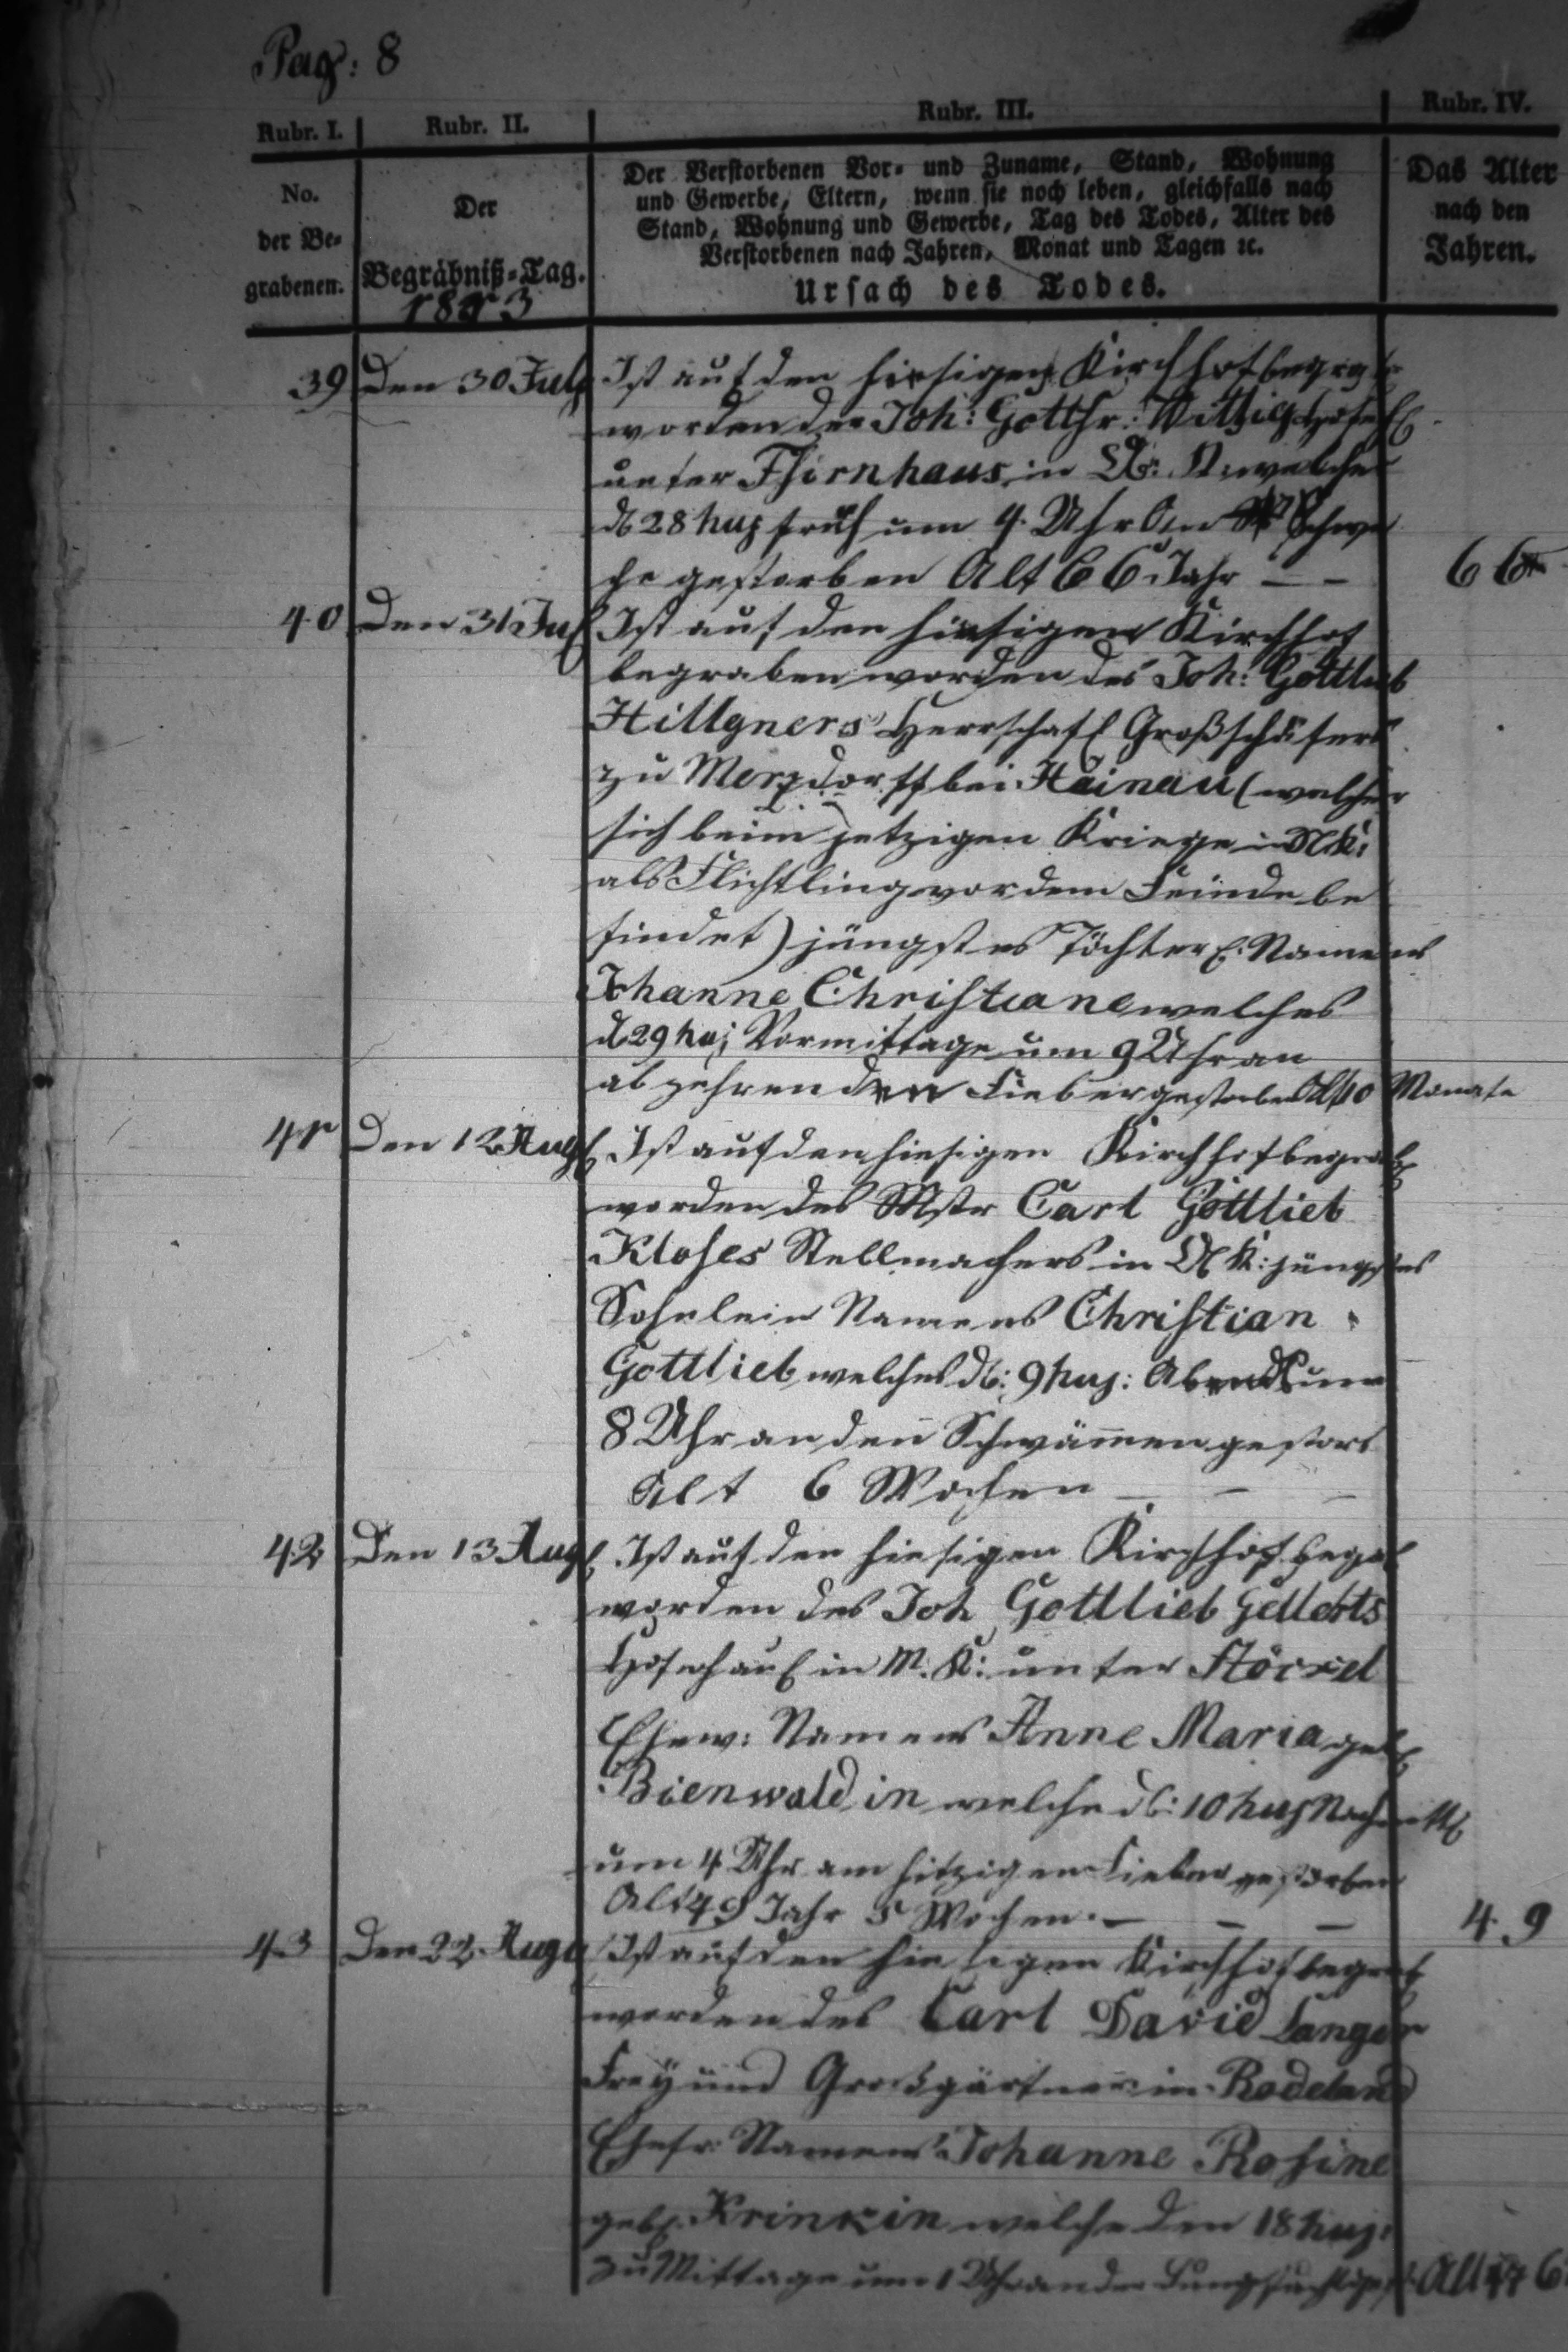 Pag: 8
Rubr. I. Rubr. II. Rubr. III. Rubr. IV.
No. der Be- grabenen.
Der Begräbniß-Tag.
1813
Der Verstorbenen Vor- und Zuname, Stand, Wohnung
und Gewerbe, Eltern, wenn sie noch leben, gleichfalls nach
Stand, Wohnung und Gewerbe, Tag des Todes, Alter des
Verstorbenen nach Jahren, Monat und Tagen ꝛc.
Ursach des Todes.
Das Alter nach den Jahren.
39 Den 30 July Ist auf den hiesigen Kirchhof begra
worden der Joh: Gottfr: Wittig
unter Thirnhaus in welcher
d 28 huj früh um 4 Uhr an Schwä
che gestorben Alt 66 Jahr — — 66
40 Den 31 Jul Ist auf den hiesigen Kirchhof
begraben worden des Joh: Gottlieb
Hillgners Herrschaftl Großschäfers
zu Merzdorff bei Hainau (welcher
sich beim jetzigen Kriege in
als Flichtling vor dem Feinde be
findet) jüngstes Töchterl. Namens
Johanne Christiane welches
d 29 huj Vormittage um 9 Uhr an
abzehrenden Fieber gestorben Alt 10 Monate
41 Den 12 Aug Ist auf den hiesigen Kirchhof begrab
worden des Mstr Carl Gottlieb
Kloses Stellmachers in jüngstes
Söhnlein Namens Christian
Gottlieb welches d: 9 huj: Abends um
8 Uhr an den Schwämmen gestorb
Alt 6 Wochen — — —
42 Den 13 Aug Ist auf den hiesigen Kirchhof begrab
worden des Joh Gottlieb Gellerts
in M. K: unter Stöckel
Ehew: Namens Anne Maria geb
Bienwaldin welche d: 10 huj Nachmitt
um 4 Uhr am hitzigen Fieber gestorben
Alt 49 Jahr 5 Wochen. — — — 49
43 Den 22 Aug Ist auf den hiesigen Kirchhof begrab
worden des Carl David Langer
Frey und Großgärtner in Rodeland
Ehefr: Namens Johanne Rosine
geb. Krinkin welche den 18 huj:
zu Mittage um 1 Uhr an der Lungensucht Alt